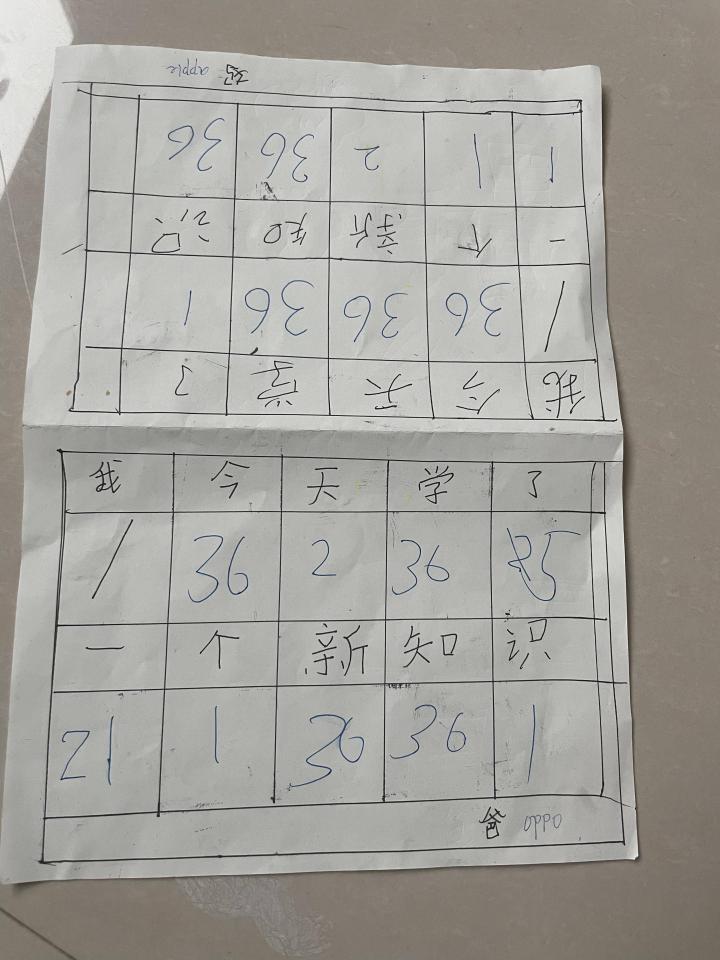 我 今 天 学 了
1 36 36 36 1
一 个 新 知 识
1 1 2 36 36
妈 apple
我 今 天 学 了
1 36 2 36
一 个 新 知 识
21 1 36 36 1
爸